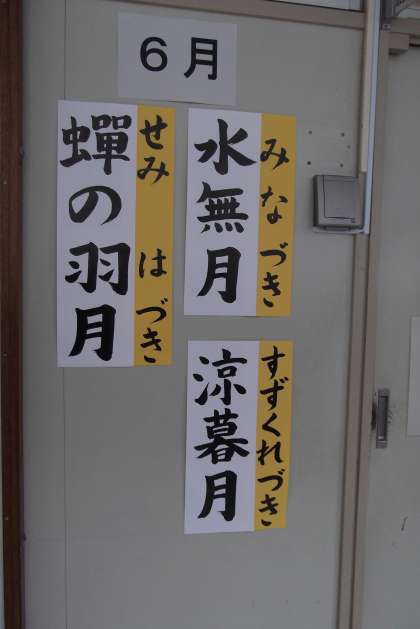 ６月
水無月
みなづき
涼暮月
すずくれづき
蟬の羽月
せみ　はづき